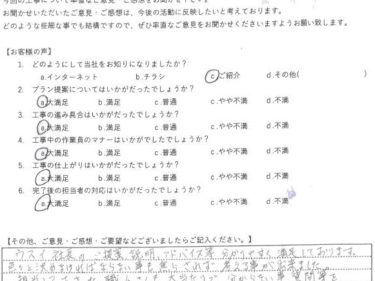 今回の工事について率直なご意見・ご感想をお聞かせください。
お聞かせいただいたご意見・ご感想は、今後の活動に反映したいと考えております。
どのような些細な事でも結構ですので、ぜひ率直なご意見をお聞かせくださいますようお願い致します。
【お客様の声】
1. どのようにして当社をお知りになりましたか？
a.インターネット b.チラシ c.ご紹介 d.その他(
2. プラン提案についてはいかがだったでしょうか？
a.大満足 b.満足 c.普通 c.やや不満 d.不満
3. 工事の進み具合はいかがだったでしょうか？
a.大満足 b.満足 c.普通 c.やや不満 d.不満
4. 工事中の作業員のマナーはいかがでしたでしょうか？
a.大満足 b.満足 c.普通 c.やや不満 d.不満
5. 工事の仕上がりはいかがだったでしょうか？
a.大満足 b.満足 c.普通 c.やや不満 d.不満
6. 完了後の担当者の対応はいかがだったでしょうか？
a.大満足 b.満足 c.普通 c.やや不満 d.不満
【その他、ご意見・ご感想・ご要望などございましたらご記入ください。】
ウスイ社長のご提案、説明、アドバイス等 分かりやすく 満足しております。
色々と決めなければならない事も焦らされず 考える事が出来ました